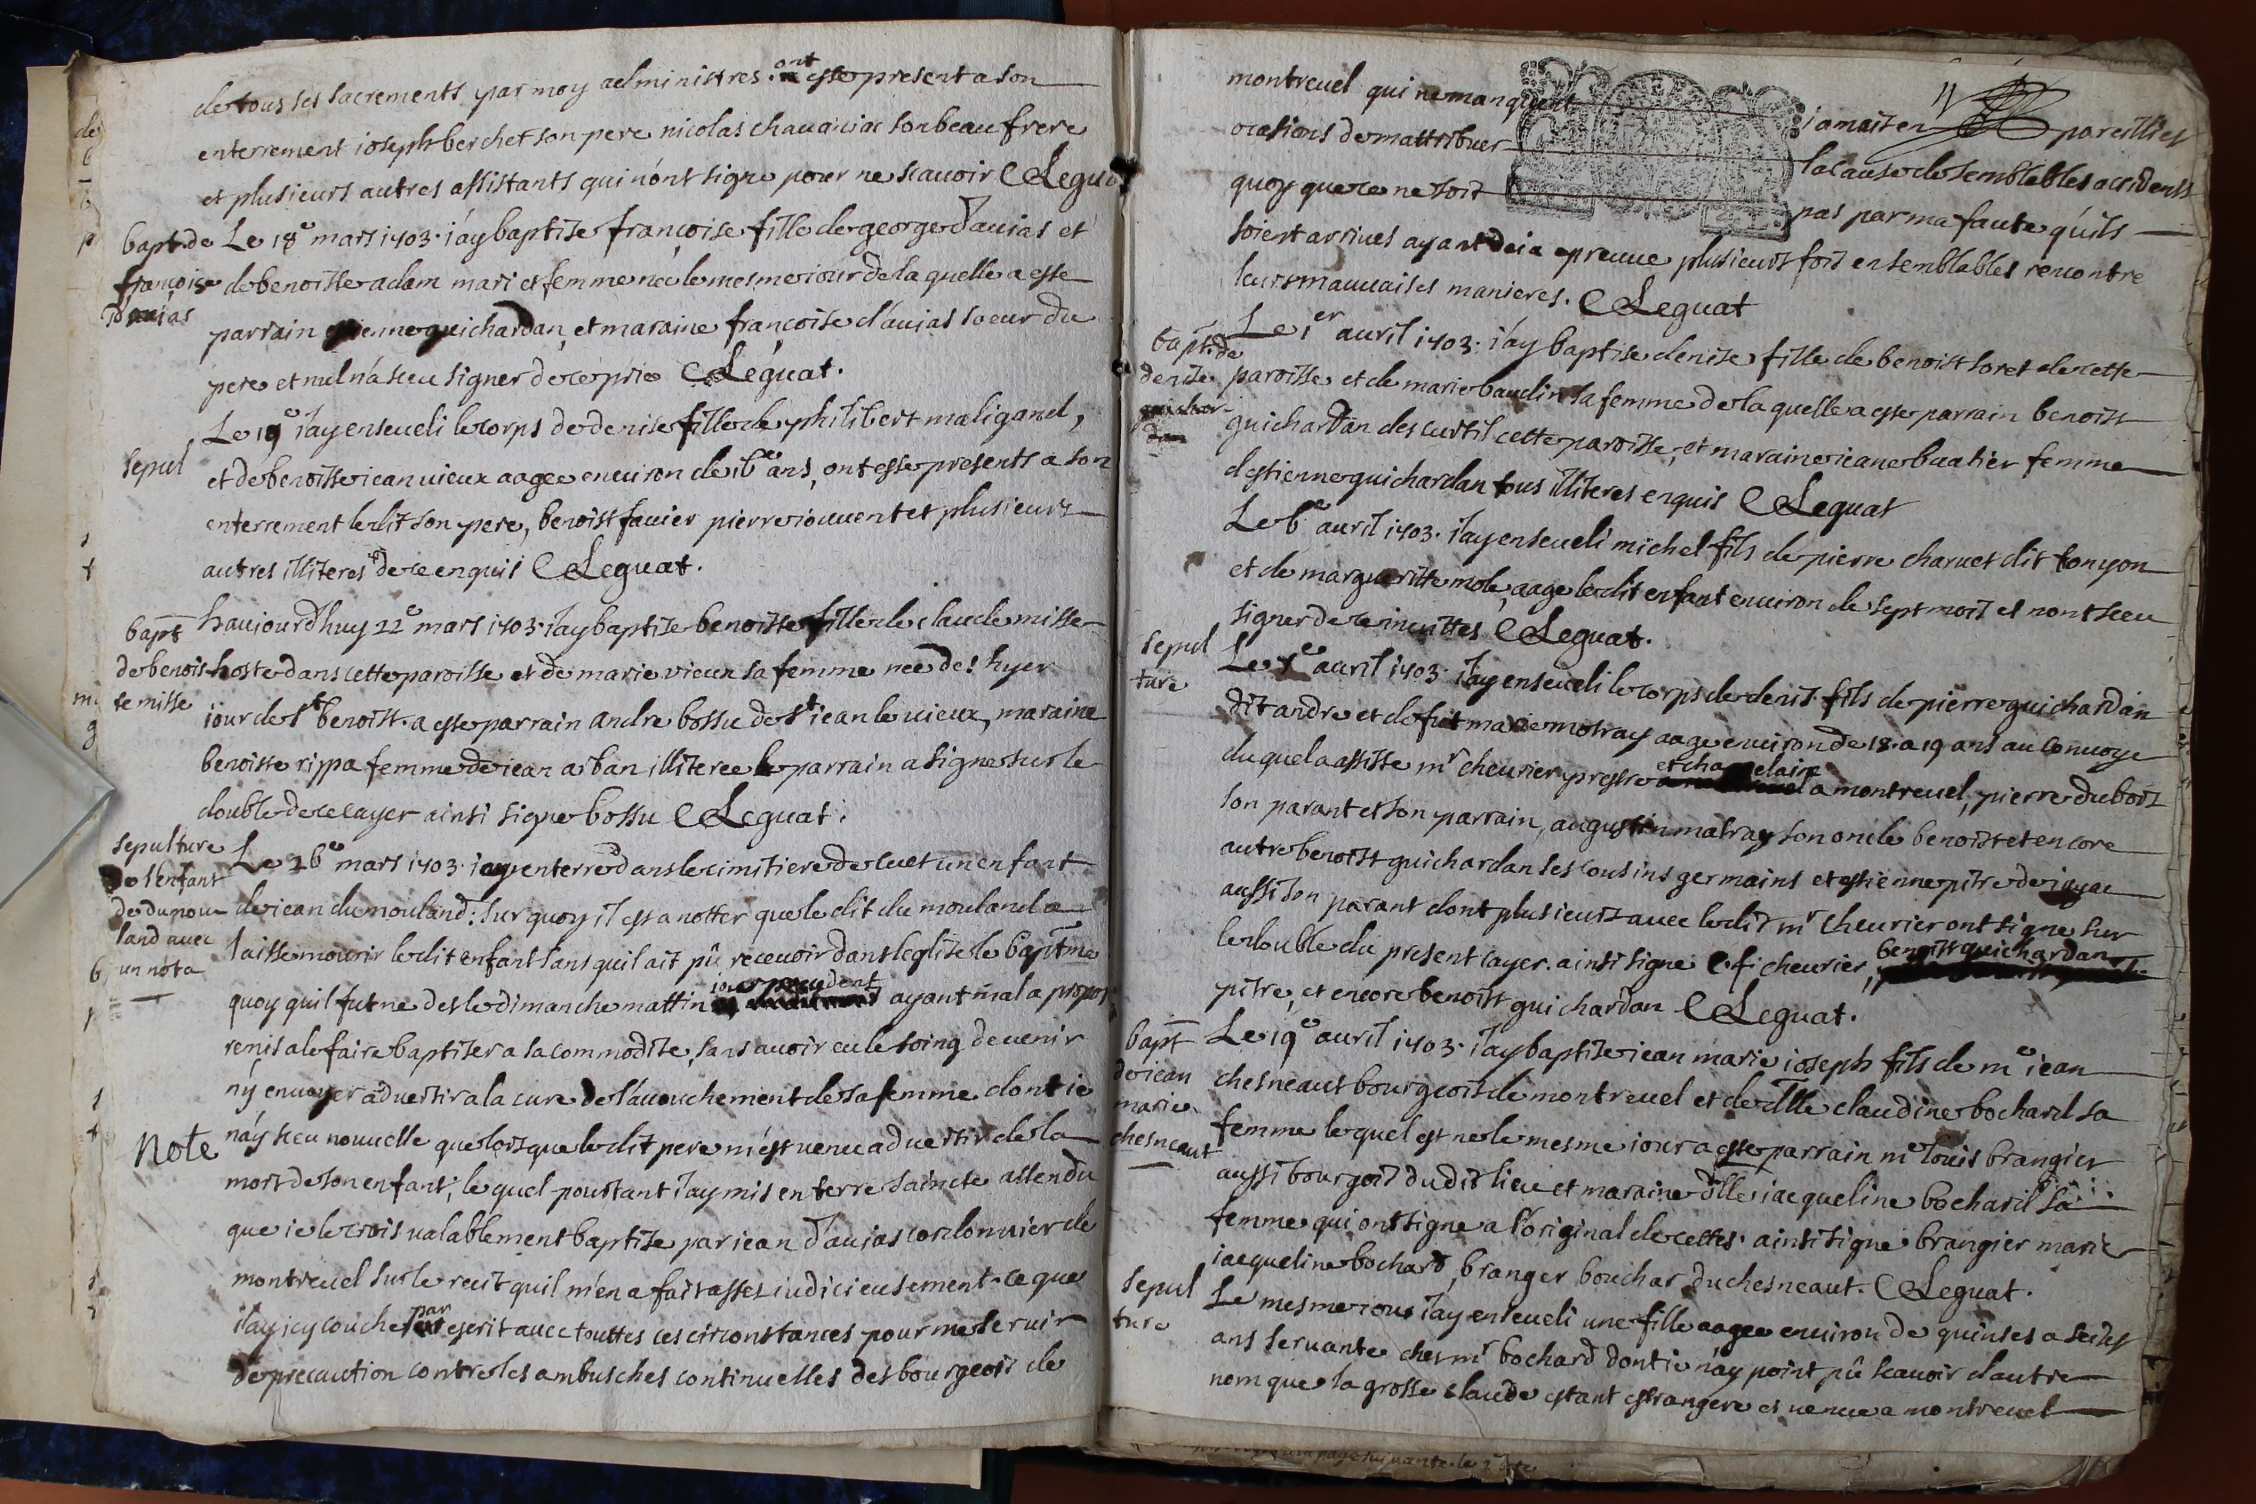 de tous ses sacrements par moy administres. ont este present a son
enterrement ioseph berchet son pere nicolas chauaniac son beau frere
et plusieurs autres assistants qui n'ont signe pour ne scauoir Leguat
bapt. de
françoise
Dauias
Le 18e mars 1703. i'ay baptise françoise fille de george Dauias et
de benoiste adam mari et femme née le mesme iour de la quelle a este
parrain estienne guichardan, et maraine françoise d'auias soeur du
pere et nul n'a sceu signer de ce prie Leguat.
sepul
Le 19e i'ay enseueli le corps de denise fille de philibert maligand,
et de benoiste iean uieux aagee enuiron de ans, ont este presents a son
enterrement ledit son pere, benoist fauier pierre iouuent et plusieurs
autres illiteres de ce enquis Leguat.
bapt
de benois
te misse
haujourdhuy 22e mars 1703. i'ay baptise benoiste fille de claude misse
hoste dans cette paroisse et de marie vieux sa femme née des hyer
iour de st benoist. a este parrain andre bossu de st iean le uieux, maraine
benoiste rippa femme de iean arban illiteree le parrain a signe sur le
double de ce cayer ainsi signe bossu Leguat.
sepulture
de l'enfant
de dumou
land auec
un nota
Le 26e mars 1703. i'ay enterré dans le cimitiere de cuet un enfant
de iean du mouland: sur quoy il est a notter que le dit du mouland a
laisse mourir le dit enfant sans quil ait pû receuoir dans leglise le baptme
quoy quil fut ne des le dimanche mattin iour precedent ayant mal a propos
remis a le faire baptiser a sa commodite, sans auoir eu le soing de uenir
ny enuoyer aduertir a la cure de l'acouchement de sa femme dont ie
Note
n'ay sceu nouuelle que lorsque le dit pere m'est uenu aduertir de la
mort de son enfant; le quel pourtant i'ay mis en terre saincte attendu
que ie le crois ualablement baptise par iean d'auias cordonnier de
montreuel sur le recit quil m'en a fait asses iudicieusement. ce que
i'ay icy couche par escrit auec touttes ces circonstances pour me seruir
de precaution contre les ambusches continuelles des bourgeois de
montreuel qui ne manquent iamais en pareilles
ocasions de mattribuer la cause de semblables accidents
quoy que ce ne soit pas par ma faute qu'ils
soient arriues ayant deia epreuue plusieurs fois en semblables rencontre
leurs mauuaises manieres. Leguat
bapt. de
denise
guichar
dan
Le 1er auril 1703. i'ay baptise denise fille de benoist soret de cette
paroisse et de marie baudin sa femme de la quelle a este parrain benoist
guichardan des curtil cette paroisse, et maraine ieane buatier femme
d'estienne guichardan tous illiteres enquis Leguat
Le 6e auril 1703. i'ay enseueli michel fils de pierre charuet dit tonyon
et de margueritte mole, aage ledit enfant enuiron de sept mois et nont sceu
signer de ce inuittes Leguat.
sepul
ture
Le auril 1703. i'ay enseueli le corps de denis fils de pierre guichardan
dit andre et de fut marie motray aage enuiron de 18. a 19 ans au conuoye
du quel a assiste mr cheurier prestre et chapelain a montreuel, pierre dubois
son parant et son parrain, augustin matray son oncle benoist et encore
autre benoist guichardan ses cousins germains et estienne pitre de
aussi son parant dont plusieurs auec ledit mr cheurier ont signe sur
le double du present cayer. ainsi signe cheurier, benoist guichardan
pitre, et encore benoist guichardan Leguat.
bapt
de iean
marie
chesneaut
Le 19e auril 1703. i'ay baptise iean marie ioseph fils de me iean
chesneaut bourgeois de montreuel et de dlle claudine bochard sa
femme lequel est ne le mesme iour a este parrain me louis brangier
aussi bourgois dudit lieu et maraine dlle iacqueline bochard sa
femme qui ont signe a l'original de cettes. ainsi signe brangier marie
iacqueline bochard, branger bouchar duchesneaut. Leguat.
sepul
ture
Le mesme iour i'ay enseueli une fille aagee enuiron de quinses a seises
ans seruante ches mr bochard dont ie n'ay point pû scauoir d'autre
nom que la grosse claude estant estrangere et uenue a montreuel